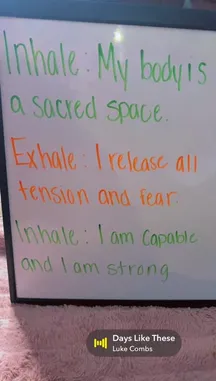 Inhale: My body is
a sacred space.
Exhale: I release all
tension and fear.
Inhale: I am capable
and I am strong
Days Like These
Luke Combs